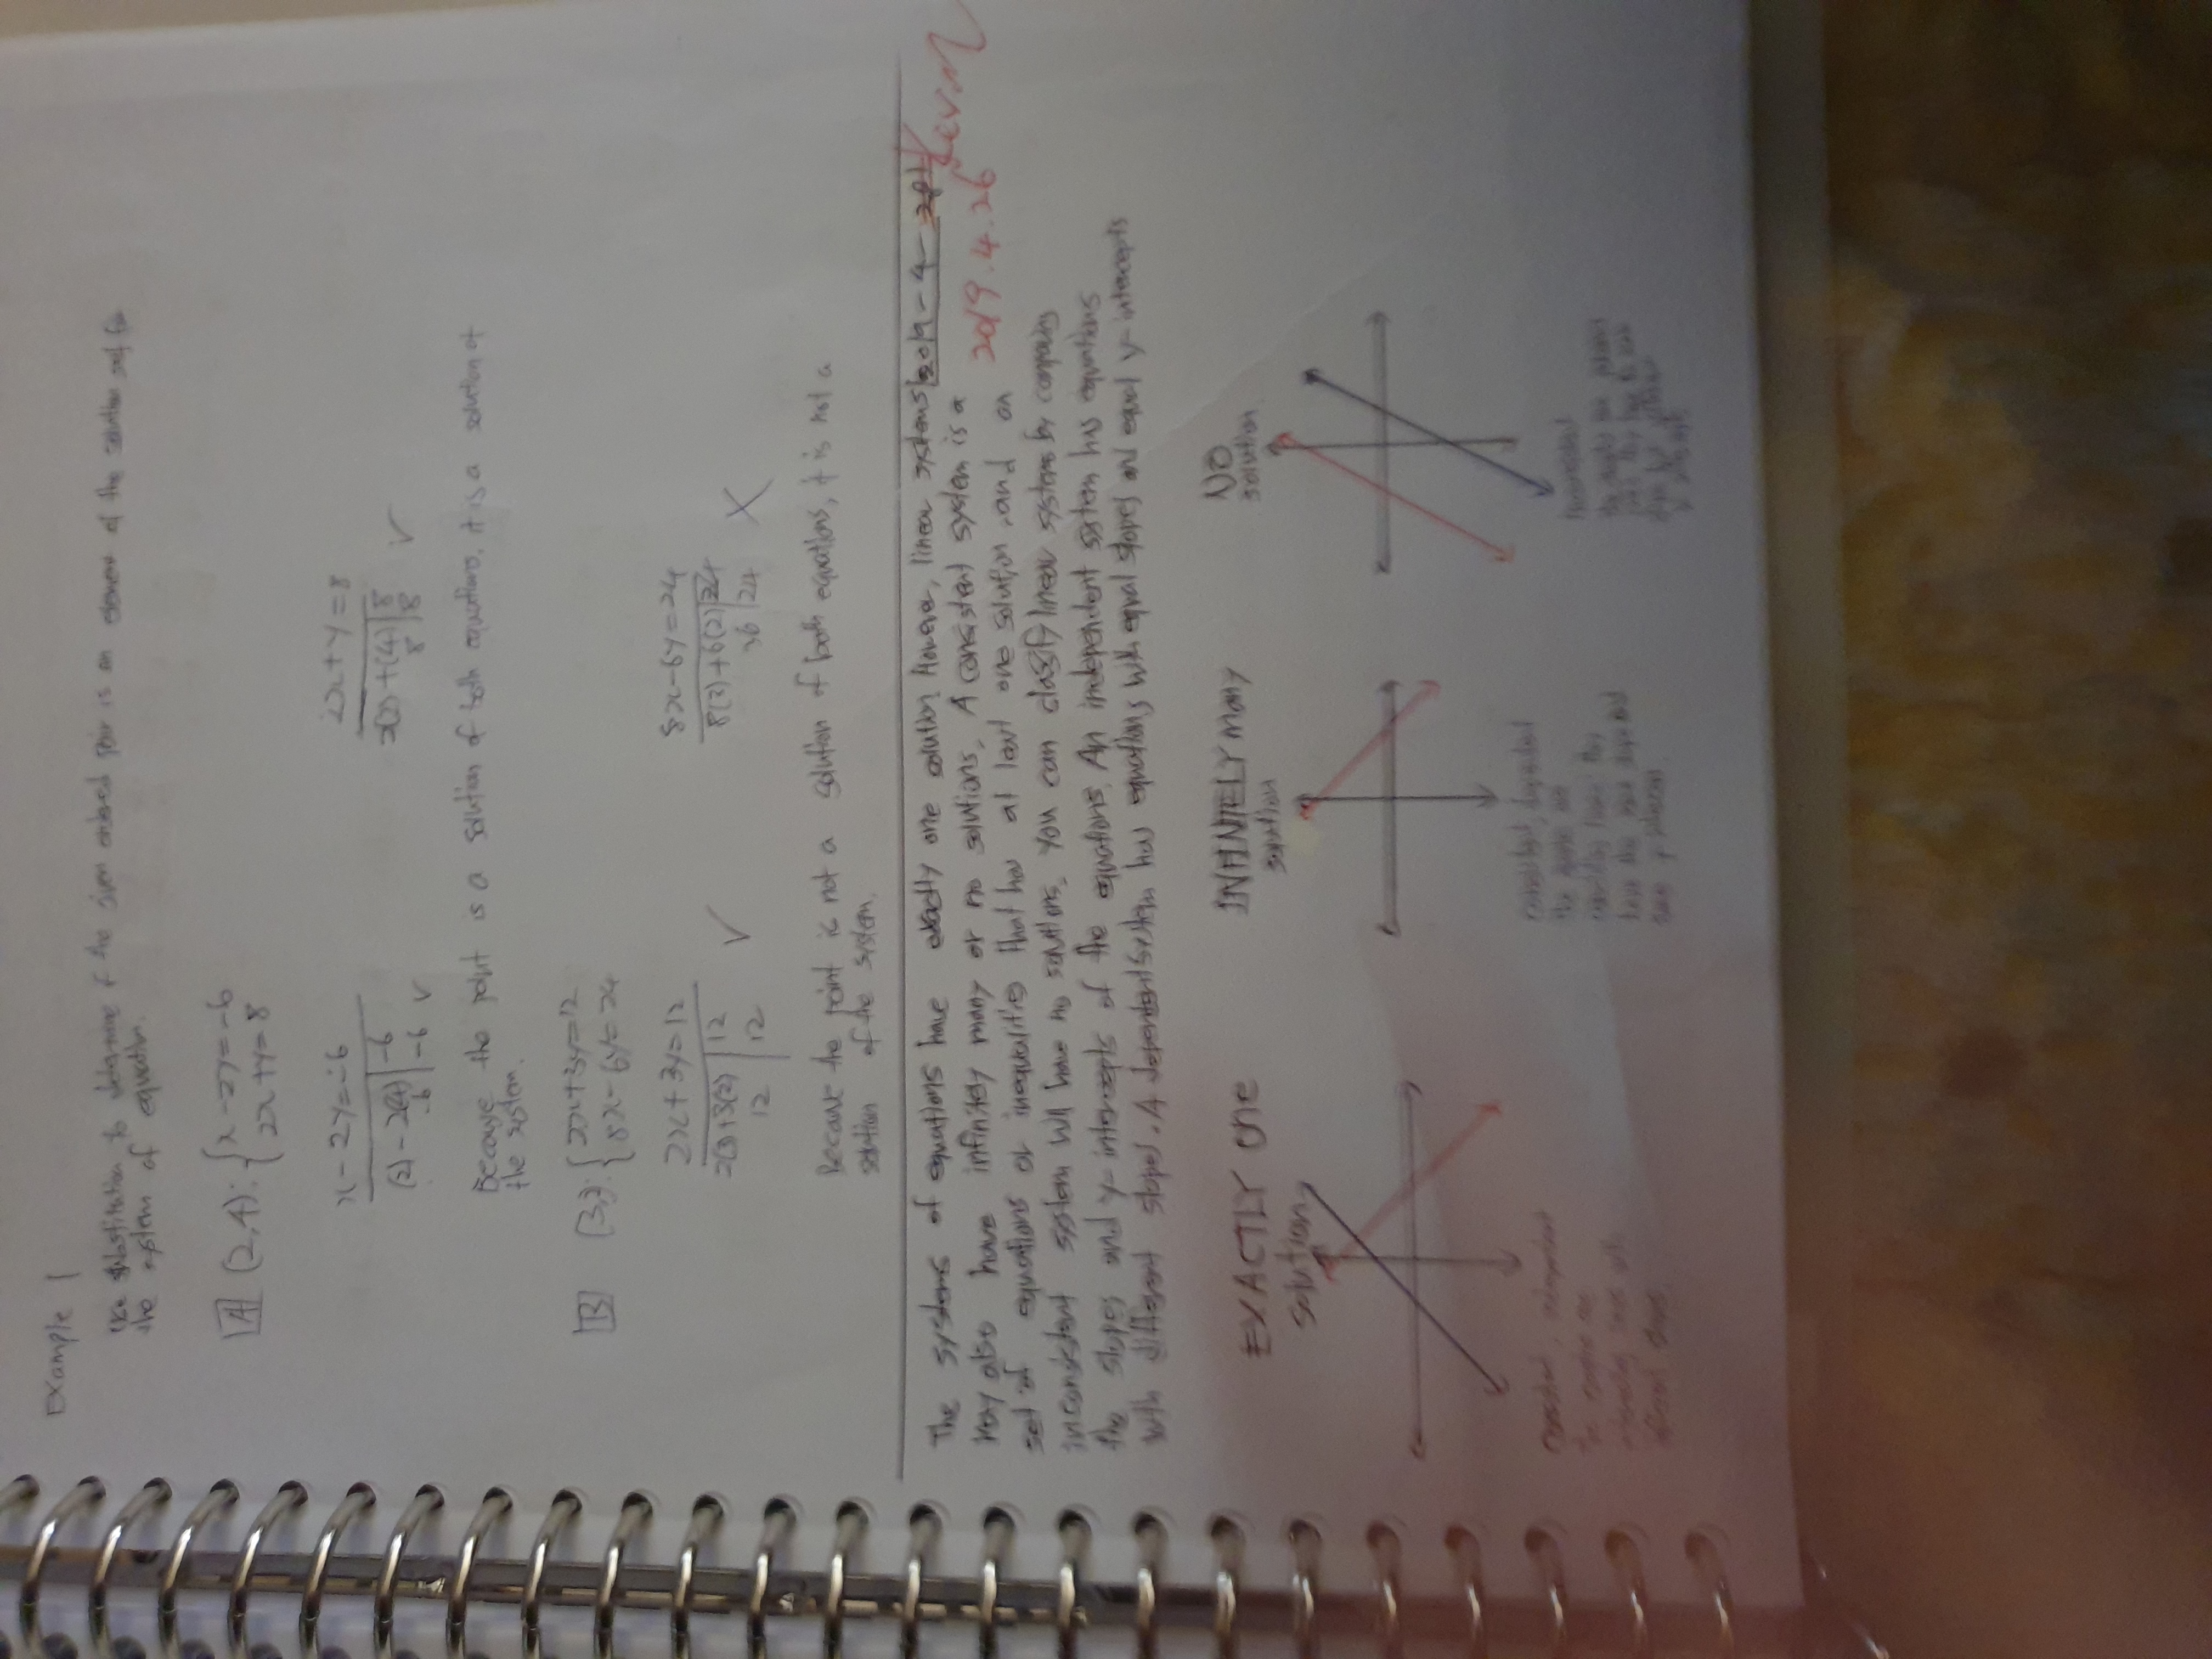 Example 1
Use substitution to determine if the given ordered pair is an element of the solution set for
the system of equation.
[A] (2,4): { x-2y=-6
2x+y=8
x-2y=-6
(2)-2(4) | -6
-6 | -6 ✓
2x+y=8
2(2)+(4) | 8
8 | 8 ✓
Because the point is a solution of both equations, it is a solution of
the system.
[B] (3,2): { 2x+3y=12
8x-6y=24
2x+3y=12
2(3)+3(2) | 12
12 | 12 ✓
8x-6y=24
8(3)+6(2) | 24
36 | 24 X
Because the point is not a solution of both equations, it is not a
solution of the system.
The systems of equations have exactly one solution. However, linear systems
may also have infinitely many or no solutions. A consistent system is a
set of equations or inequalities that has at least one solution, and an
inconsistent system will have no solutions. You can classify linear systems by comparing
the slopes and y-intercepts of the equations. An independent system has equations
with different slopes. A dependent system has equations with equal slopes and equal y-intercepts
2019-4-
2019.4.26
EXACTLY one
solution
INFINITELY many
solution
NO
solution
consistent, independent
the graphs are
intersecting lines with
different slopes
consistent, dependent
the graphs are
have the same slope and
same y-